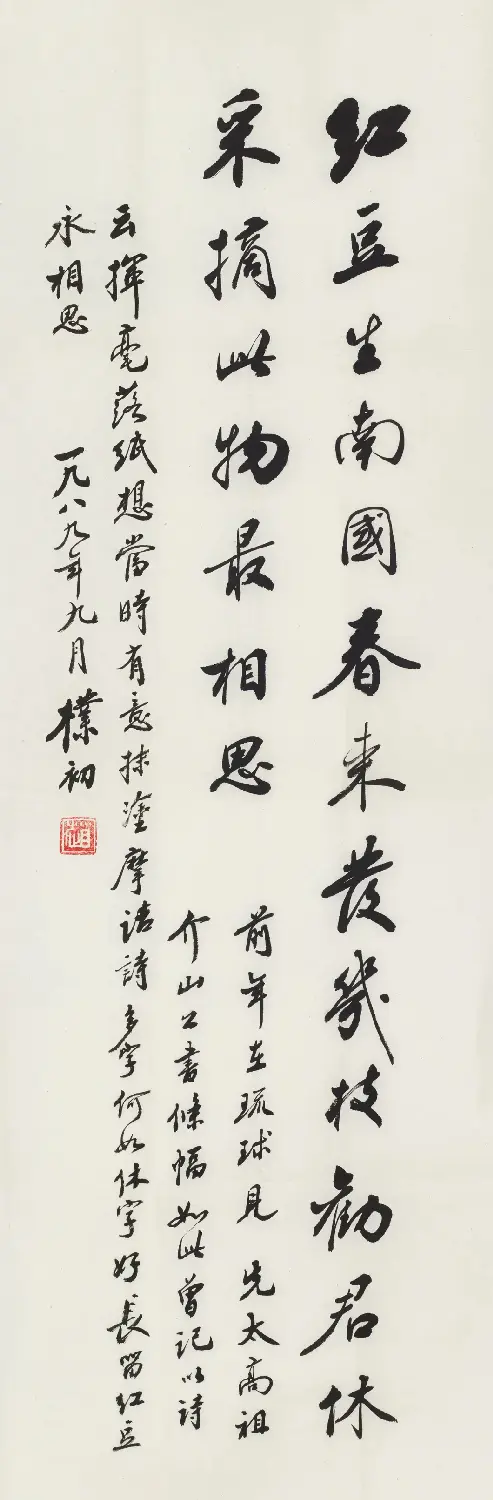 紅豆生南國春来發幾枝勸君休
采摘此物最相思
前年在琉球見先太高祖
介山公書條幅如此曾記以詩
云揮毫落紙想當時有意抹塗摩詰詩多字何如休字好長留紅豆
永相思
一九八九年九月樸初
趙